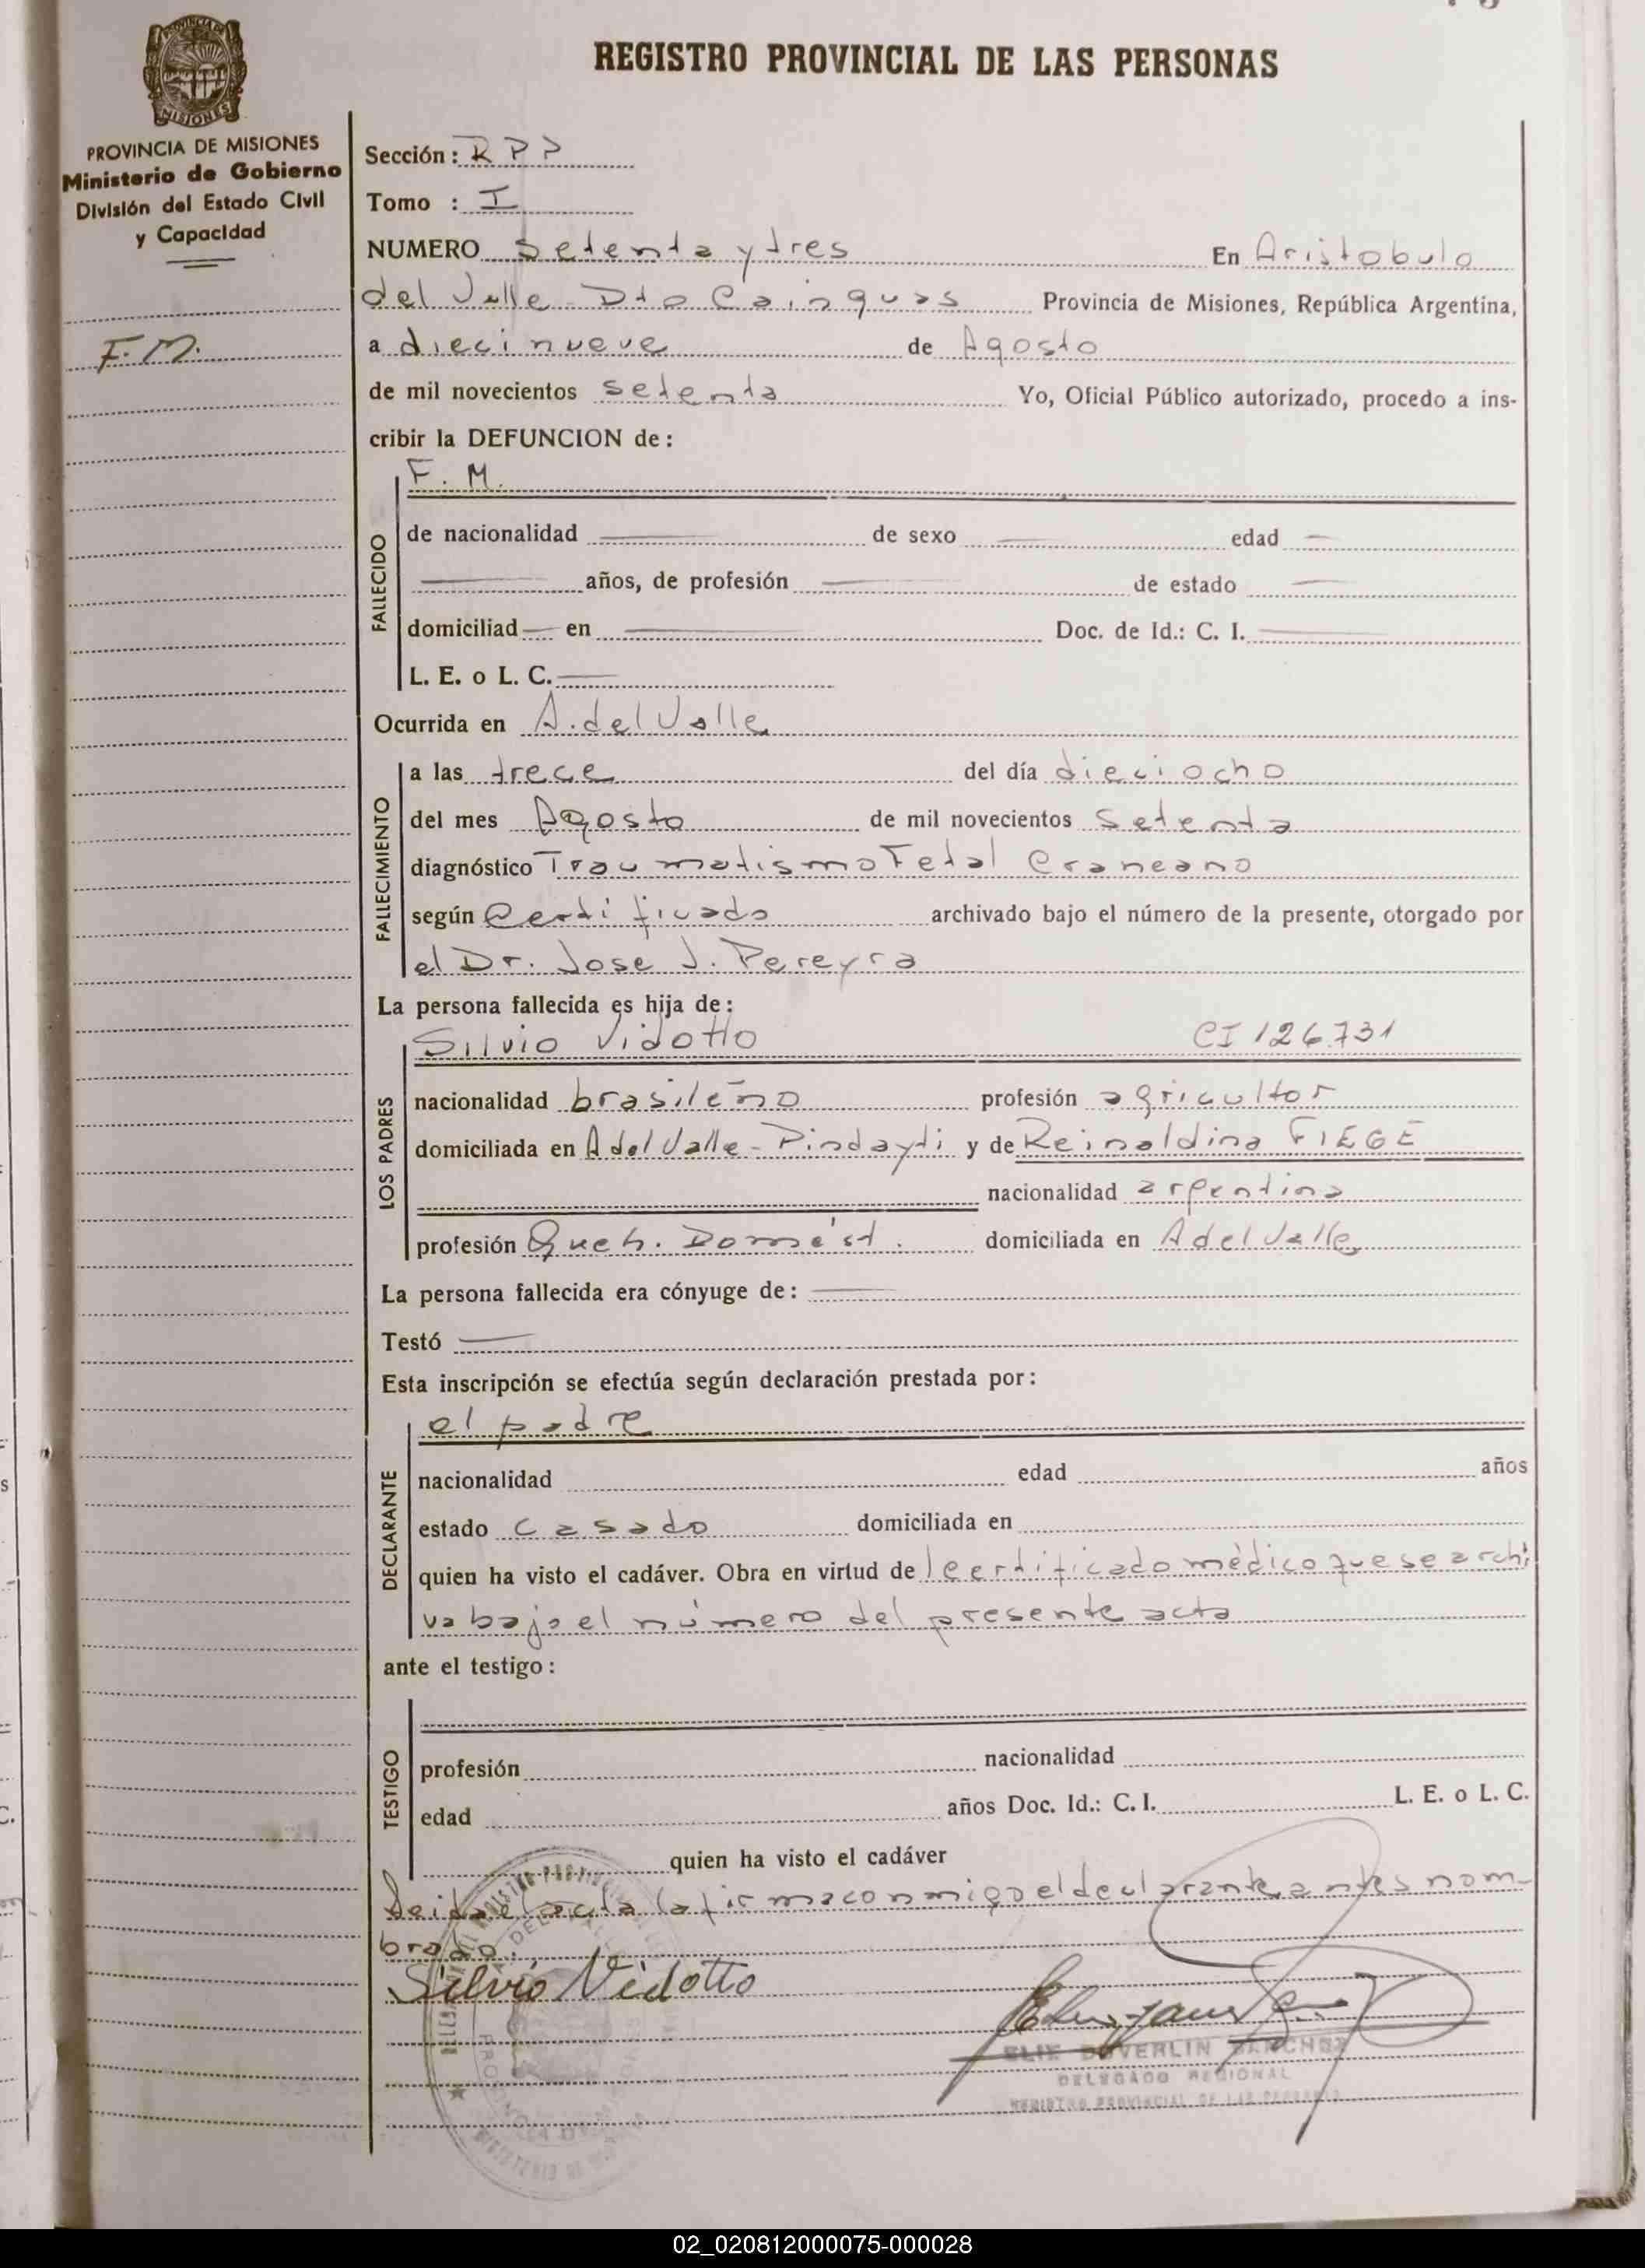 REGISTRO PROVINCIAL DE LAS PERSONAS
PROVINCIA DE MISIONES
Ministerio de Gobierno
División del Estado Civil
y Capacidad
F. M.
Sección: R P P
Tomo : I
NUMERO setenta y tres En Aristobulo
del Valle Dto Cainguas Provincia de Misiones, República Argentina,
a diecinueve de Agosto
de mil novecientos setenta Yo, Oficial Público autorizado, procedo a ins-
cribir la DEFUNCION de:
F. M.
FALLECIDO
de nacionalidad — de sexo — edad —
— años, de profesión — de estado —
domiciliad — en — Doc. de Id.: C. I. —
L. E. o L. C. —
Ocurrida en A. del Valle
FALLECIMIENTO
a las trece del día dieciocho
del mes Agosto de mil novecientos setenta
diagnóstico Traumatismo Fetal Craneano
según Certificado archivado bajo el número de la presente, otorgado por
el Dr. Jose J. Pereyra
La persona fallecida es hija de:
Silvio Vidotto CI 126.731
LOS PADRES
nacionalidad brasileño profesión agricultor
domiciliada en A del Valle - Pindayti y de Reinaldina FIEGE
nacionalidad argentina
profesión Queh. Domést. domiciliada en A del Valle
La persona fallecida era cónyuge de: —
Testó —
Esta inscripción se efectúa según declaración prestada por:
el padre
DECLARANTE
nacionalidad edad años
estado casado domiciliada en
quien ha visto el cadáver. Obra en virtud de l certificado médico que se archi
va bajo el número del presente acta
ante el testigo:
TESTIGO
profesión nacionalidad
edad años Doc. Id.: C. I. L. E. o L. C.
quien ha visto el cadáver
Leida el acta la firma conmigo el declarante antes nom-
brado.
Silvio Vidotto
SANCHEZ
DELEGADO REGIONAL
REGISTRO PROVINCIAL DE LAS PERSONAS
02_020812000075-000028